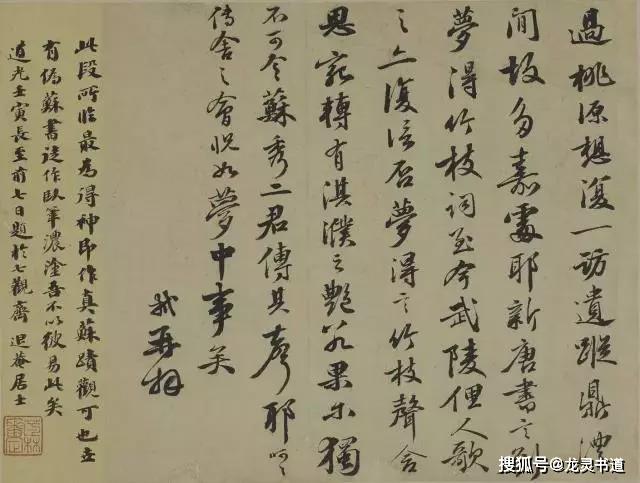 過桃源想復一訪遺蹤鼎澧
間故多嘉處耶新唐書言劉
夢得竹枝詞至今武陵俚人歌
之亦復信否夢得之竹枝聲含
思宛轉有淇濮之艷若果爾獨
不可令蘇秀二君傳其聲耶
傳舍之會怳如夢中事矣
軾再拜
此段所臨最為得神即作真蘇蹟觀可也立
有偽蘇書逞作臥筆濃塗吾不以彼易此矣
道光壬寅長至前七日題於七觀齋 退菴居士
搜狐号@龙灵书道